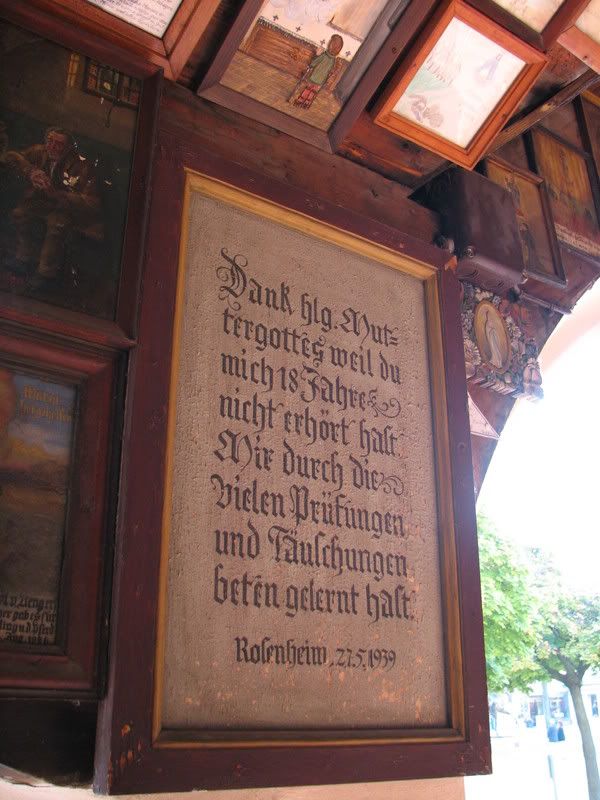 Dank hlg. Mut-
tergottes weil du
mich 18 Jahre
nicht erhört hast
Mir durch die
vielen Prüfungen
und Täuschungen
beten gelernt hast
Rosenheim, 27.5.1939